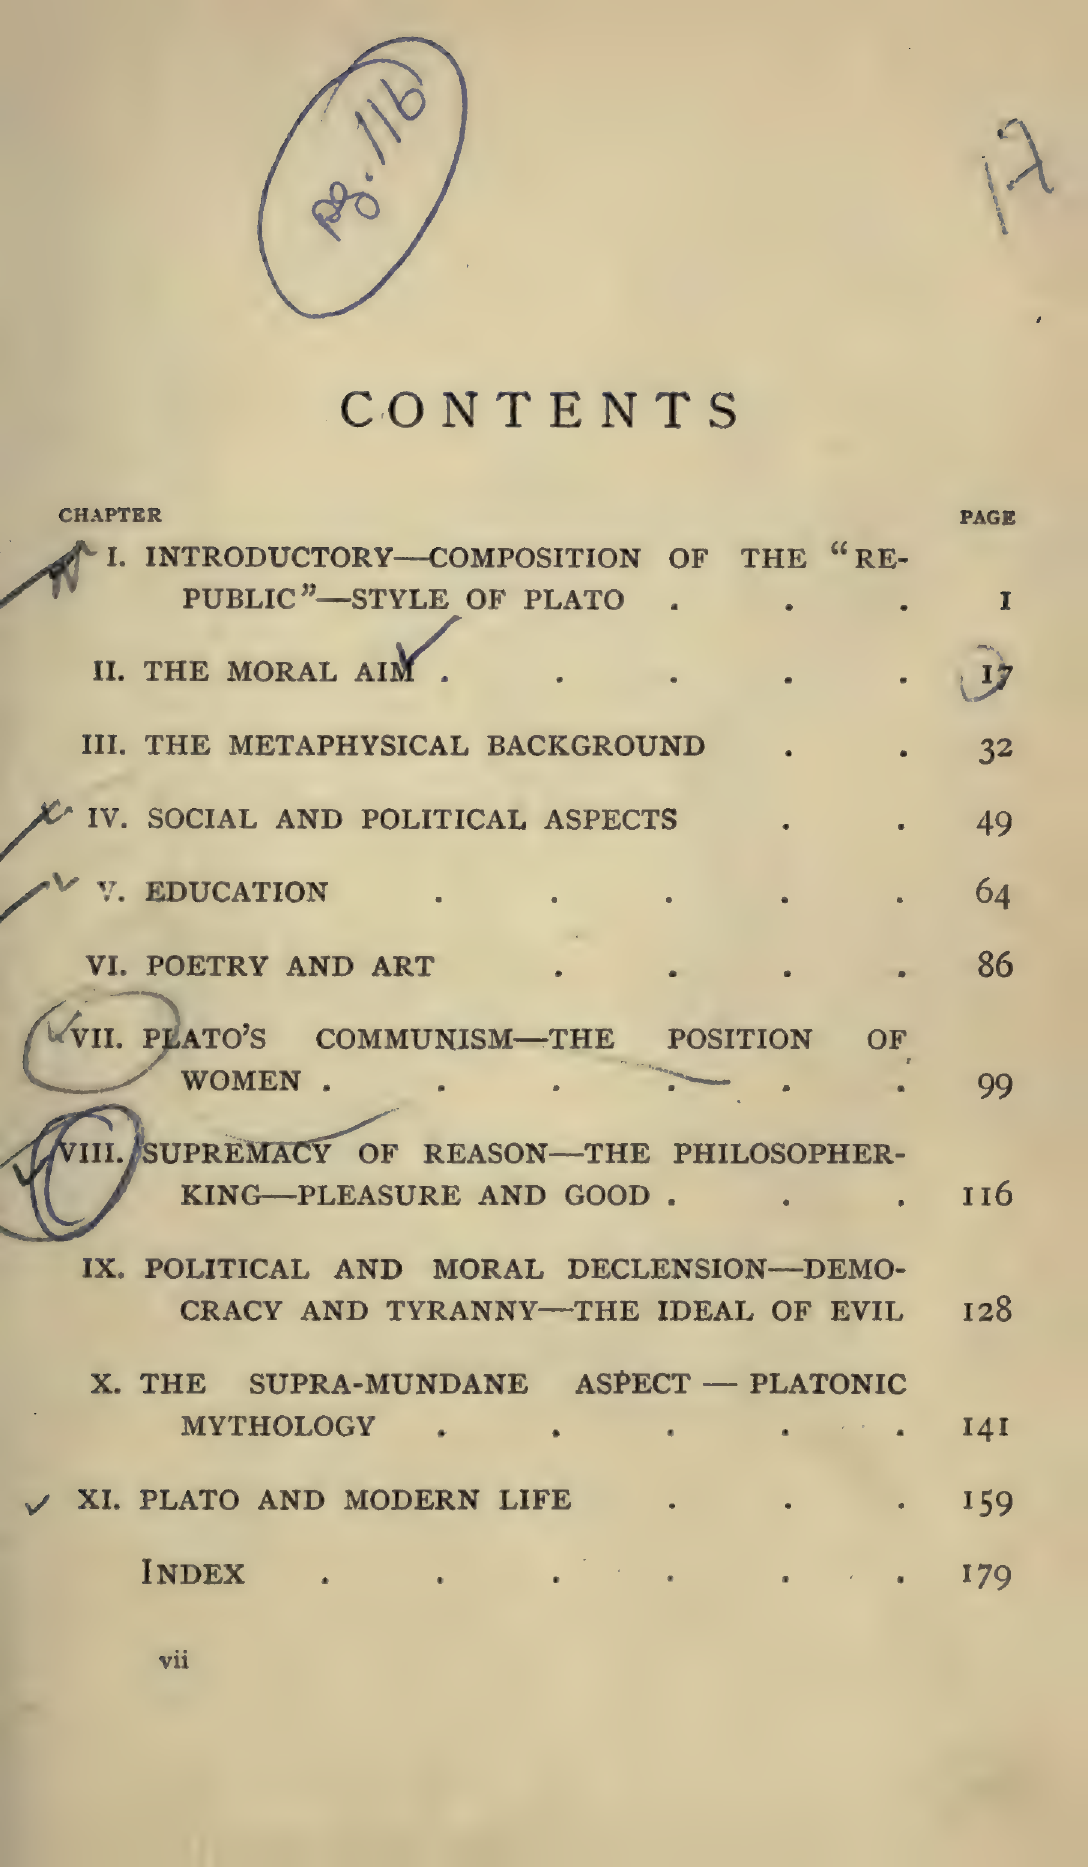 pg. 116
17
CONTENTS
CHAPTER PAGE
I. INTRODUCTORY—COMPOSITION OF THE “RE-
PUBLIC”—STYLE OF PLATO . . . 1
II. THE MORAL AIM . . . . . 17
III. THE METAPHYSICAL BACKGROUND . . 32
IV. SOCIAL AND POLITICAL ASPECTS . . 49
V. EDUCATION . . . . . 64
VI. POETRY AND ART . . . . 86
VII. PLATO’S COMMUNISM—THE POSITION OF
WOMEN . . . . . . 99
VIII. SUPREMACY OF REASON—THE PHILOSOPHER-
KING—PLEASURE AND GOOD . . . 116
IX. POLITICAL AND MORAL DECLENSION—DEMO-
CRACY AND TYRANNY—THE IDEAL OF EVIL 128
X. THE SUPRA-MUNDANE ASPECT — PLATONIC
MYTHOLOGY . . . . . 141
XI. PLATO AND MODERN LIFE . . . 159
INDEX . . . . . . 179
vii